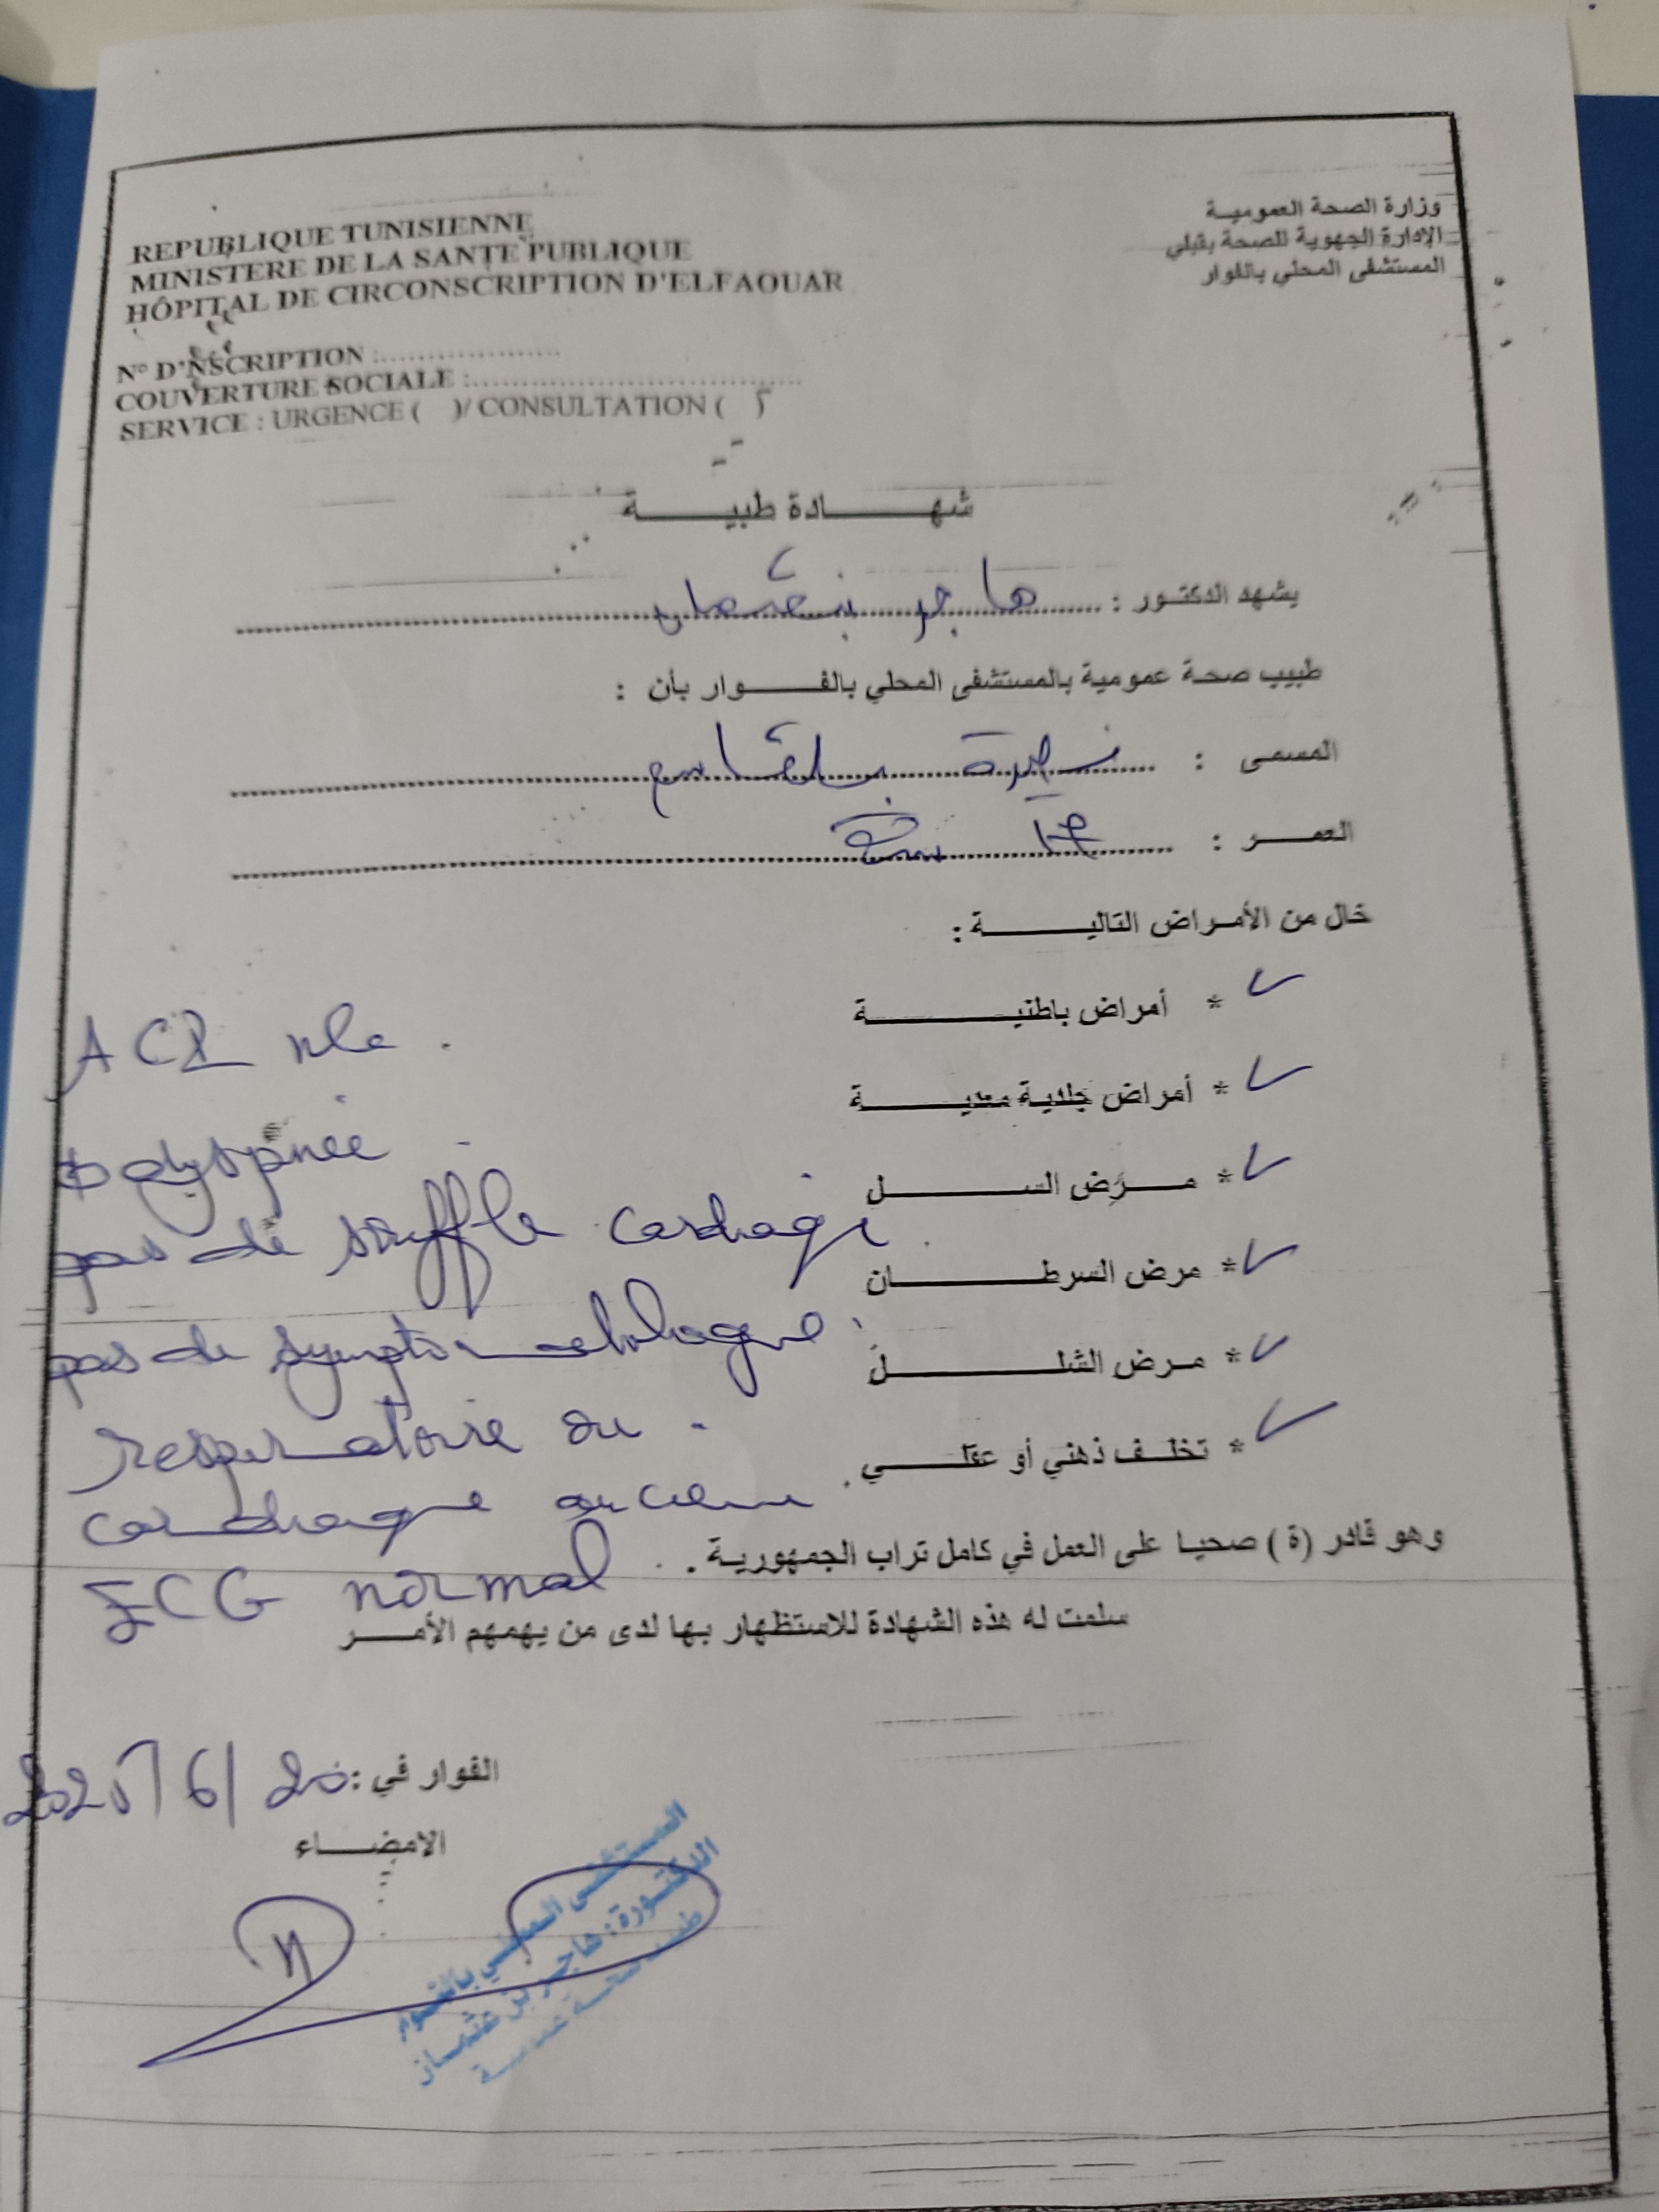 REPUBLIQUE TUNISIENNE
MINISTERE DE LA SANTE PUBLIQUE
HÔPITAL DE CIRCONSCRIPTION D'ELFAOUAR
وزارة الصحة العمومية
الإدارة الجهوية للصحة بقبلي
المستشفى المحلي بالفوار
N° D'NSCRIPTION :....................
COUVERTURE SOCIALE :....................
SERVICE : URGENCE ( )/ CONSULTATION ( )
شهــادة طبيــة
يشهد الدكتور : هاجر بن عثمان
طبيب صحة عمومية بالمستشفى المحلي بالفــوار بأن :
المسمى : بلقاسم
العمــر : سنة
خال من الأمراض التاليــة :
* أمراض باطنيــة
* أمراض جلدية معديــة
* مــرض الســل
* مرض السرطــان
* مــرض الشلــل
* تخلــف ذهني أو عقلــي
ACP nle
dyspnée
pas de souffle cardiaque
pas de symptomatologie
respiratoire ou
cardiaque ancienne
ECG normal
وهو قادر (ة) صحيا على العمل في كامل تراب الجمهورية .
سلمت له هذه الشهادة للاستظهار بها لدى من يهمهم الأمــر
الفوار في : 20/6/2025
الامضــاء
المستشفى المحلي بالفوار
الدكتورة : هاجر بن عثمان
طب صحة عمومية